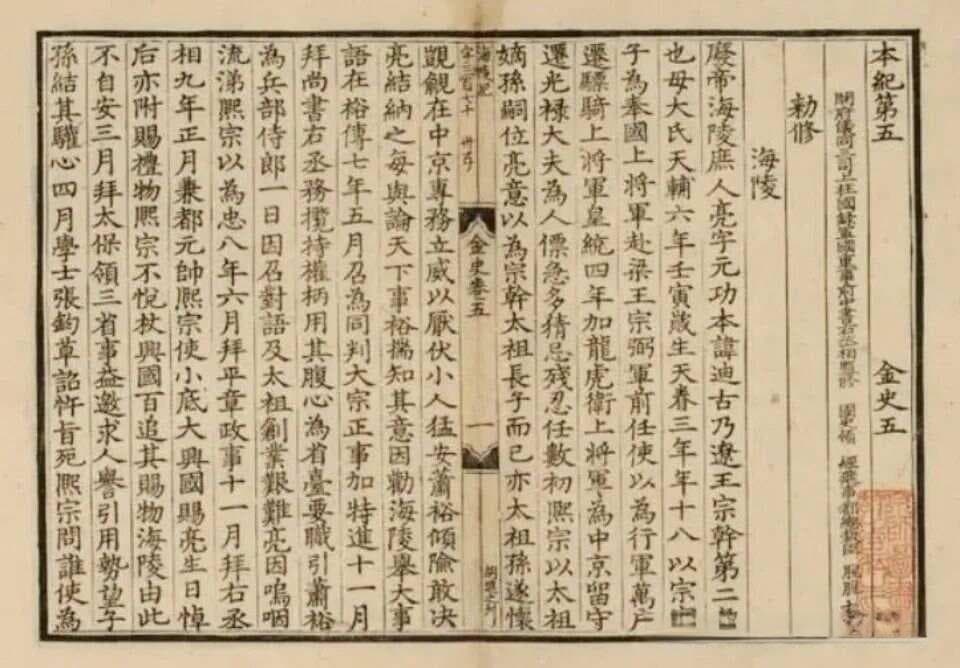 本紀第五 金史五
開府儀同三司上柱國錄軍國重事前中書右丞相監修 國史領 經筵事都總裁臣 脫脫
勅修
海陵
廢帝海陵庶人亮字元功本諱迪古乃遼王宗幹第二
也母大氏天輔六年壬寅歲生天眷三年年十八以宗室
子為奉國上將軍赴梁王宗弼軍前任使以為行軍萬戶
遷驃騎上將軍皇統四年加龍虎衛上將軍為中京留守
遷光祿大夫為人僄急多猜忌殘忍任數初熙宗以太祖
嫡孫嗣位亮意以為宗幹太祖長子而已亦太祖孫遂懷
金史卷五 一
覬覦在中京專務立威以厭伏小人猛安蕭裕傾險敢決
亮結納之每與論天下事裕揣知其意因勸海陵舉大事
語在裕傳七年五月召為同判大宗正事加特進十一月
拜尚書右丞務攬持權柄用其腹心為省臺要職引蕭裕
為兵部侍郎一日因召對語及太祖創業艱難亮因嗚咽
流涕熙宗以為忠八年六月拜平章政事十一月拜右丞
相九年正月兼都元帥熙宗使小底大興國賜亮生日悼
后亦附賜禮物熙宗不悅杖興國百追其賜物海陵由此
不自安三月拜太保領三省事益邀求人譽引用勢望子
孫結其驩心四月學士張鈞草詔忤旨死熙宗問誰使為